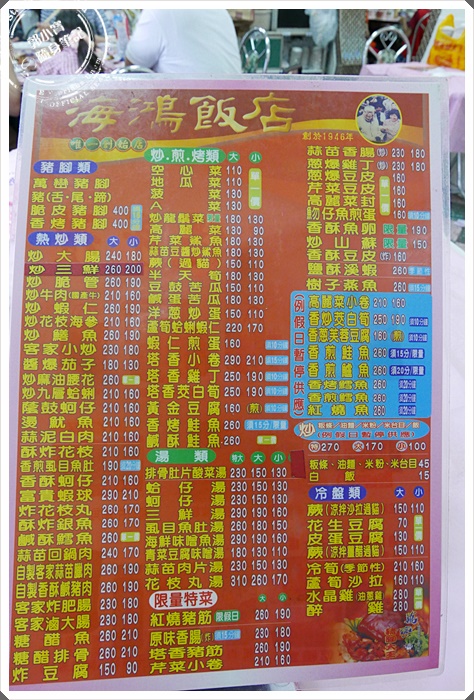 海鴻飯店
唯一創始店
創於1946年
豬腳類
萬巒豬腳
豬(舌·尾·蹄)
脆皮豬腳 400
香烤豬腳 400
熱炒類 大 小
炒大腸 240 180
炒三鮮 260 200
炒脆管 260 190
炒牛肉(國產牛) 210 160
炒蝦仁 260 190
炒花枝海參 210 160
炒鱔魚 260 190
客家小炒 230 180
醬爆茄子 180 130
炒麻油腰花 260
炒九層蛤蜊 210 160
蔭鼓蚵仔 210 160
燙魷魚 230 180
蒜泥白肉 210 160
酥炸花枝 210 160
香煎虱目魚肚 190
香酥蚵仔 210 160
富貴蝦球 290 210
炸花枝丸 210 160
酥炸銀魚 210 160
鹹酥鱈魚 260
蒜苗回鍋肉 240 170
自製客家蒜苗臘肉 260 190
自製香酥鹹豬肉 260 190
客家炸肥腸 230 180
客家滷大腸 230 180
糖醋魚 260 190
糖醋排骨 260 210
炸豆腐 150 90
炒.煎.烤類 大 小
空心菜 110
地瓜菜 110
菠菜 110
A菜 110
炒龍鬚菜 180 130
高麗菜 130 90
芹菜鯊魚 180 130
蒜苗豆醬炒鯊魚 180 130
蕨(過貓) 150 110
半天筍 180 130
豆鼓苦瓜 150 110
鹹蛋苦瓜 180 130
洋蔥炒蛋 150 110
蘆筍蛤蜊蝦仁 220 170
蝦仁煎蛋 160
塔香小卷 290 210
塔香雞丁 250 190
塔香茭白筍 250 190
黃金豆腐 160 (煎)
香烤鮭魚 260
鹹酥鮭魚 260
湯類 特大 大 小
排骨肉片酸菜湯 230 150 130
蛤仔湯 230 150 130
蚵仔湯 230 150 130
三鮮湯 290 190 130
虱目魚肚湯 260 190 150
海鮮味噌魚湯 290 190 150
青菜豆腐味噌湯 180 130 110
蒜苗肉片湯 230 150 130
花枝丸湯 310 260 170
限量特菜 大 小
紅燒豬筋 限假日 260 190
原味香腸(炸) 230 180
塔香豬筋 260 190
芹菜小卷 210 160
蒜苗香腸(炒) 230 180
蔥爆雞丁(炒) 230 180
蔥爆豆皮 160
芹菜豆皮 160
高麗菜封 160
魩仔魚煎蛋 160
香酥魚卵 限量 190
炒山蘇 限量 150
香酥豆皮(炸) 160
鹽酥溪蝦 280
樹子蒸魚 260
(例假日暫停供應)
高麗菜小卷 210 160
香炒茭白筍 250 190
香蔥芙蓉豆腐 160 (煎)
香煎鮭魚 須15分/限量
香煎鱸魚 須20分/限量
香烤鱈魚
香煎鱈魚
紅燒魚
炒 粄條/油麵/米粉/米台目/飯
(例假日暫停供應)
特270 大170 小100
粄條·油麵·米粉·米台目 45
白飯 15
冷盤類 大 小
蕨(涼拌沙拉過貓) 150 110
花生豆腐 70
皮蛋豆腐 130
蕨(涼拌鹽醋過貓) 150 110
冷筍(季節性) 210 160
蘆筍沙拉 160 110
水晶雞(油蔥雞) 280
醉雞 280